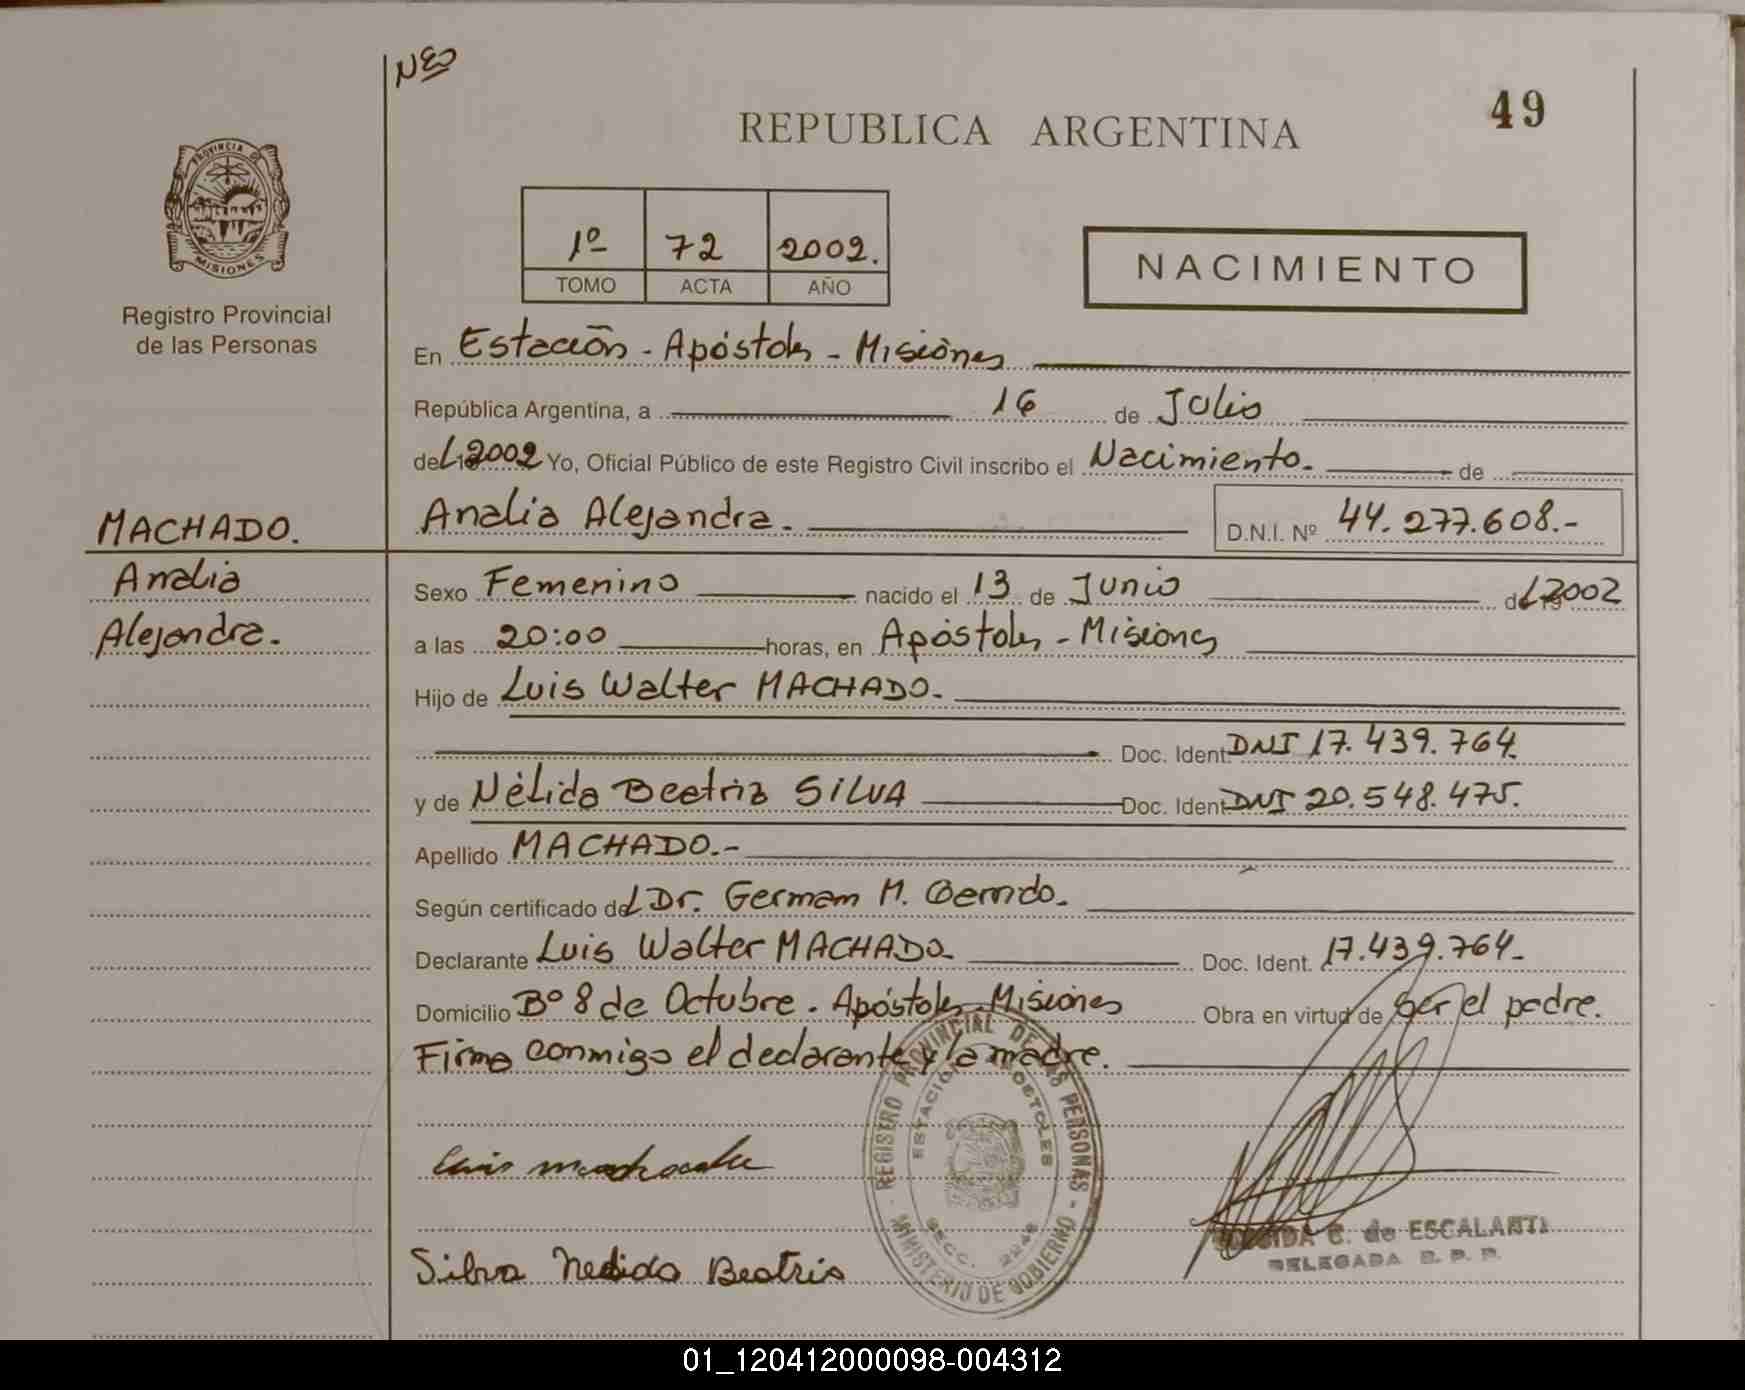 NEO
49
REPUBLICA ARGENTINA
PROVINCIA DE MISIONES
Registro Provincial
de las Personas
1º 72 2002.
TOMO ACTA AÑO
NACIMIENTO
En Estación - Apóstoles - Misiones
República Argentina, a 16 de Julio
del 2002 Yo, Oficial Público de este Registro Civil inscribo el Nacimiento. de
MACHADO.
Analia Alejandra. D.N.I. Nº 44.277.608.-
Analia
Alejandra.
Sexo Femenino nacido el 13 de Junio del 2002
a las 20:00 horas, en Apóstoles - Misiones
Hijo de Luis Walter MACHADO.
Doc. Ident. DNI 17.439.764.
y de Nélida Beatriz SILVA Doc. Ident. DNI 20.548.475.
Apellido MACHADO.-
Según certificado del Dr. German M.
Declarante Luis Walter MACHADO Doc. Ident. 17.439.764-
Domicilio Bº 8 de Octubre. Apóstoles - Misiones Obra en virtud de ser el padre.
Firma conmigo el declarante y la madre.
REGISTRO PROVINCIAL DE LAS PERSONAS - MINISTERIO DE GOBIERNO -
ESTACION APOSTOLES
SECC. 2248
Silva Nelida Beatris
C. de ESCALANTE
DELEGADA R. P. P.
01_120412000098-004312